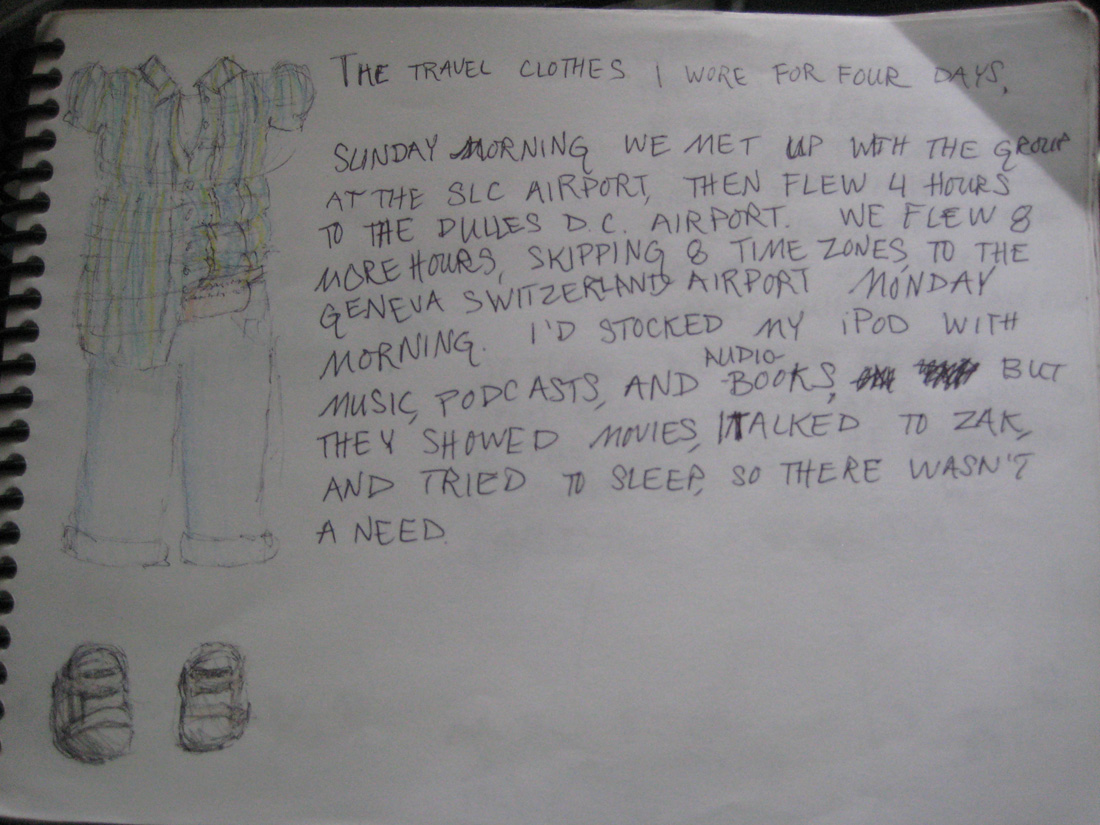 THE TRAVEL CLOTHES I WORE FOR FOUR DAYS.
SUNDAY MORNING WE MET UP WITH THE GROUP
AT THE SLC AIRPORT, THEN FLEW 4 HOURS
TO THE DULLES D.C. AIRPORT. WE FLEW 8
MORE HOURS, SKIPPING 8 TIME ZONES, TO THE
GENEVA SWITZERLAND AIRPORT MONDAY
MORNING. I'D STOCKED MY iPOD WITH
MUSIC, PODCASTS, AND AUDIO-BOOKS, BUT
THEY SHOWED MOVIES, I TALKED TO ZAK,
AND TRIED TO SLEEP, SO THERE WASN'T
A NEED.